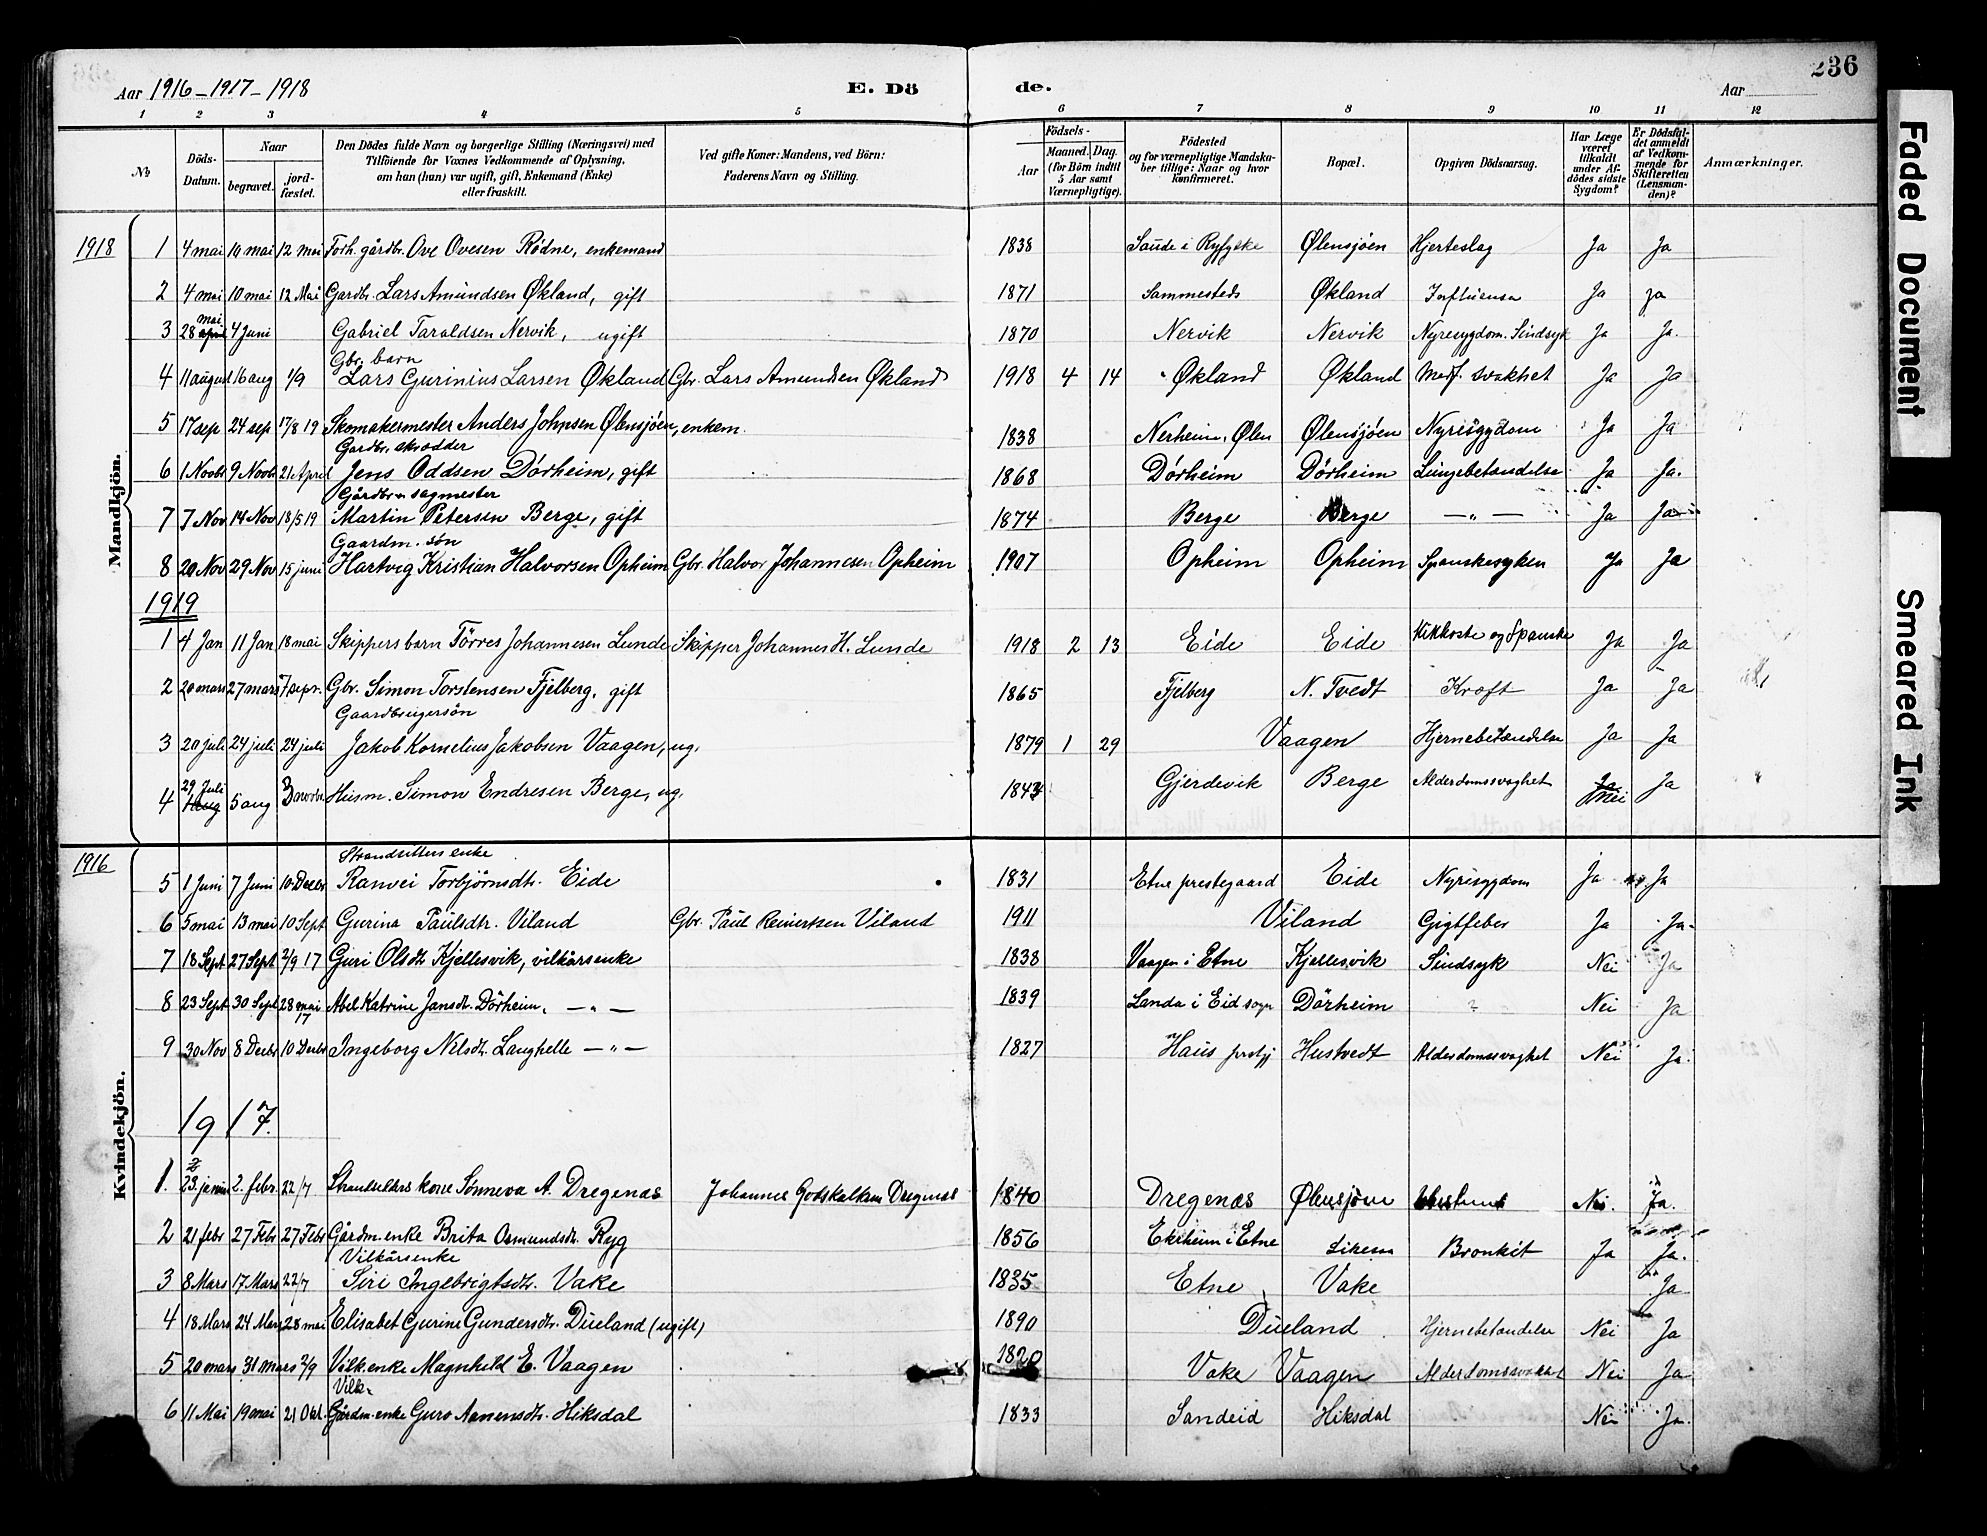 236
Aar 1916-1917-1918 E. Dö de. Aar
1 2 3 4 5 6 7 8 9 10 11 12
No Döds-Datum. Naar begravet. jordfæstet. Den Dödes fulde Navn og borgerlige Stilling (Næringsvei) med Tilföiende for Voxnes Vedkommende af Oplysning, om han (hun) var ugift, gift, Enkemand (Enke) eller fraskilt. Ved gifte Koner: Mandens, ved Börn: Faderens Navn og Stilling. Födsels- Aar Maaned. Dag. (for Börn indtil 5 Aar samt Værnepligtige). Födested og for værnepligtige Mandskaber tillige: Naar og hvor konfirmeret. Bopæl. Opgiven Dödsaarsag. Har Læge været tilkaldt under Afdödes sidste Sygdom? Er Dödsfaldet anmeldt af Vedkommende for Skifteretten (Lensmanden)? Anmærkninger.
Mandkjön.
1918 1 4 mai 10 mai 12 mai Forh. gårdbr. Ove Ovesen Rødne, enkemand 1838 Saude i Ryfylke Ølensjøen Hjerteslag Ja Ja
2 4 mai 10 mai 12 Mai Gardbr. Lars Amundsen Økland, gift 1871 Sammesteds Økland Influensa Ja ja
3 28 mai april 4 Juni Gabriel Taraldsen Nervik, ugift 1870 Nervik Nervik Nyresygdom. Sindsyk Ja Ja.
Gbr. barn
4 11 august 16 aug 1/9 Lars Gurinius Larsen Økland Gbr. Lars Amundsen Økland 1918 4 14 Økland Økland Medf. svakhet Ja Ja
5 17 sep 24 sep 17/8 19 Skomakermester Anders Johnsen Ølensjøen, enkem. 1838 Nerheim, Ølen Ølensjøen Nyresygdom Ja Ja
Gardbr. skrødder
6 1 Novbr 9 Novbr 21 April Jens Oddsen Dörheim, gift 1868 Dörheim Dörheim Lungebetændelse Ja Ja.
Gårdbr. sagmester
7 7 Nov 14 Nov 18/5 19 Martin Petersen Berge, gift 1874 Berge Berge — „ — Ja Ja
Gaardm. søn
8 20 Nov 29 Nov 15 juni Hartvig Kristian Halvorsen Opheim Gbr. Halvor Johannesen Opheim 1907 Opheim Opheim Spanskesyken Ja Ja
1919
1 4 Jan 11 Jan 18 mai Skippers barn Törres Johannesen Lunde Skipper Johannes H. Lunde 1918 2 13 Eide Eide Kikhoste og Spanske Ja Ja
2 20 mars 27 mars 7 sepr. Gbr. Simon Torstensen Fjelberg, gift 1865 Fjelberg N. Tvedt Kræft Ja Ja
Gaardbrugersøn
3 20 juli 24 juli 24 juli Jakob Kornelius Jakobsen Vaagen, ug. 1879 1 29 Vaagen Hjernebetændelse Ja Ja
4 29 Juli 1 aug 5 aug 3 novbr Husm. Simon Endresen Berge, ug. 1843 Gjerdevik Berge Alderdomssvaghet Ja Nei Ja
Kvindekjön.
1916 Strandsitters enke
5 1 Juni 7 Juni 10 Decbr Ranvei Torbjørnsdtr. Eide 1831 Etne prestegaard Eide Nyresygdom Ja Ja
6 5 mai 13 mai 10 Sept Gurina Paulsdtr. Viland Gbr. Paul Reinertsen Viland 1911 Viland Gigtfeber Ja Ja.
7 18 Sept 27 Sept 2/9 17 Guri Olsdtr Kjellesvik, vilkårsenke 1838 Vaagen i Etne Kjellesvik Sindsyk Nei Ja
8 23 Sept 30 Sept 28 mai 17 Abel Katrine Jansdtr. Dörheim, — „ — 1839 Landa i Eid sogn Dörheim ? Nei Ja
9 30 Nov 8 Decbr 10 Decbr Ingeborg Nilsdtr. Langhelle — „ — 1827 Haus prestgj Hustvedt Alderdomssvaghet Nei Ja
1917.
1. 23. januar 2. febr. 22/7 Strandsitters kone Sönneva A. Dregenæs Johannes Godskalksen Dregenæs 1840 Dregenæs Ølensjøen Nei. Ja.
2 21 febr 27 Febr 27 Febr Gårdm. enke Brita Osmundsdtr. Ryg 1856 Ekrheim i Etne Bronkit Ja Ja.
Vilkårsenke
3 8 Mars 17 Mars 22/7 Siri Ingebrigtsdtr. Vake 1835 Etne Vake Ja
4 18 Mars 24 Mars 28 mai Elisabet Gurine Gundersdtr. Dueland (ugift) 1890 Dueland Hjernebetændelse Nei Ja
5 20 mars 31 mars 2/9 Vilk. enke Magnhild E. Vaagen 1820 Vake Vaagen Alderdomssvakhet Nei Ja
Vilk.
6 11 Mai 19 mai 21 Okt. Gårdm. enke Guro Aanensdtr. Hiksdal 1833 Sandeid Hiksdal Nei Ja.
Faded Document
Smeared Ink